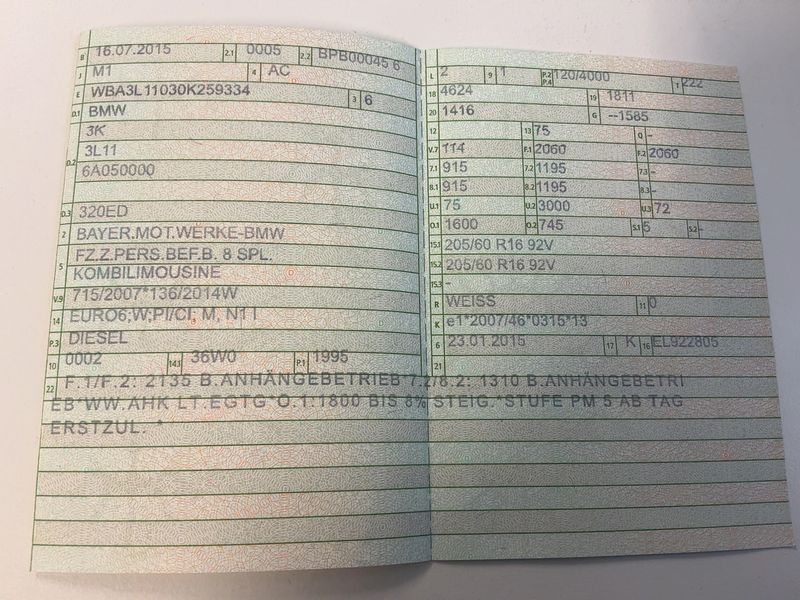 B 16.07.2015 2.1 0005 2.2 BPB00045 6
J M1 4 AC
E WBA3L11030K259334 3 6
D.1 BMW
3K
D.2 3L11
6A050000
D.3 320ED
2 BAYER.MOT.WERKE-BMW
5 FZ.Z.PERS.BEF.B. 8 SPL.
KOMBILIMOUSINE
V.9 715/2007*136/2014W
14 EURO6;W;PI/CI; M, N1 I
P.3 DIESEL
10 0002 14.1 36W0 P.1 1995
L 2 9 1 P.2 P.4 120/4000 T 222
18 4624 19 1811
20 1416 G --1585
12 13 75 Q -
V.7 114 F.1 2060 F.2 2060
7.1 915 7.2 1195 7.3 -
8.1 915 8.2 1195 8.3 -
U.1 75 U.2 3000 U.3 72
O.1 1600 O.2 745 S.1 5 S.2 -
15.1 205/60 R16 92V
15.2 205/60 R16 92V
15.3 -
R WEISS 11 0
K e1*2007/46*0315*13
6 23.01.2015 17 K 16 EL922805
21
22 F.1/F.2: 2135 B.ANHÄNGEBETRIEB*7.2/8.2: 1310 B.ANHÄNGEBETRI
EB*WW.AHK LT.EGTG*O.1:1800 BIS 8% STEIG.*STUFE PM 5 AB TAG
ERSTZUL. *